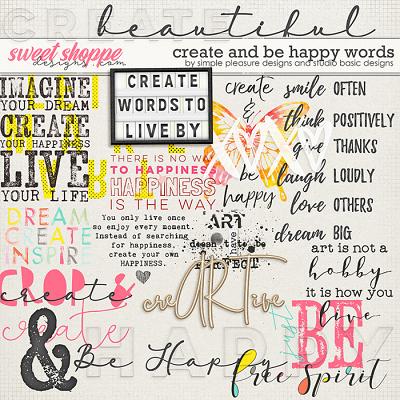 CREATE
beautiful
sweet shoppe
designs.com
create and be happy words
by simple pleasure designs and studio basic designs
IMAGINE
YOUR DREAM
CREATE
YOUR HAPPINESS
LIVE
YOUR LIFE
CREATE
WORDS TO
LIVE BY
create
&
be
happy
smile OFTEN
think POSITIVELY
give THANKS
laugh LOUDLY
love OTHERS
dream BIG
THERE IS NO WAY
TO HAPPINESS
HAPPINESS
IS THE WAY
DREAM
CREATE
INSPIRE
You only live once
so enjoy every moment.
Instead of searching
for happiness,
create your own
HAPPINESS.
ART
doesn't have to be
PERFECT
art is not a
hobby
it is how you
live
CROP &
create
creARTive
just
BE
HAPPY
& Be Happy
free Spirit